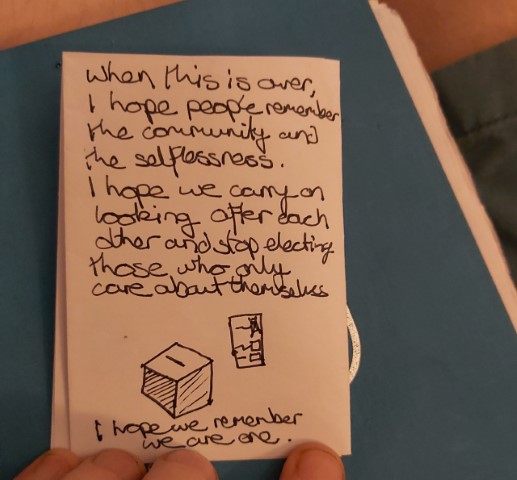 when this is over,
I hope people remember
the community and
the selflessness.
I hope we carry on
looking after each
other and stop electing
those who only
care about themselves
I hope we remember
we are one.